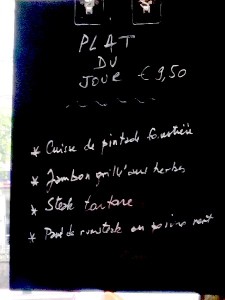 PLAT
DU
JOUR € 9,50
* Cuisse de pintade forestière
* Jambon grillé aux herbes
* Steak tartare
* Pavé de rumsteak au poivre vert